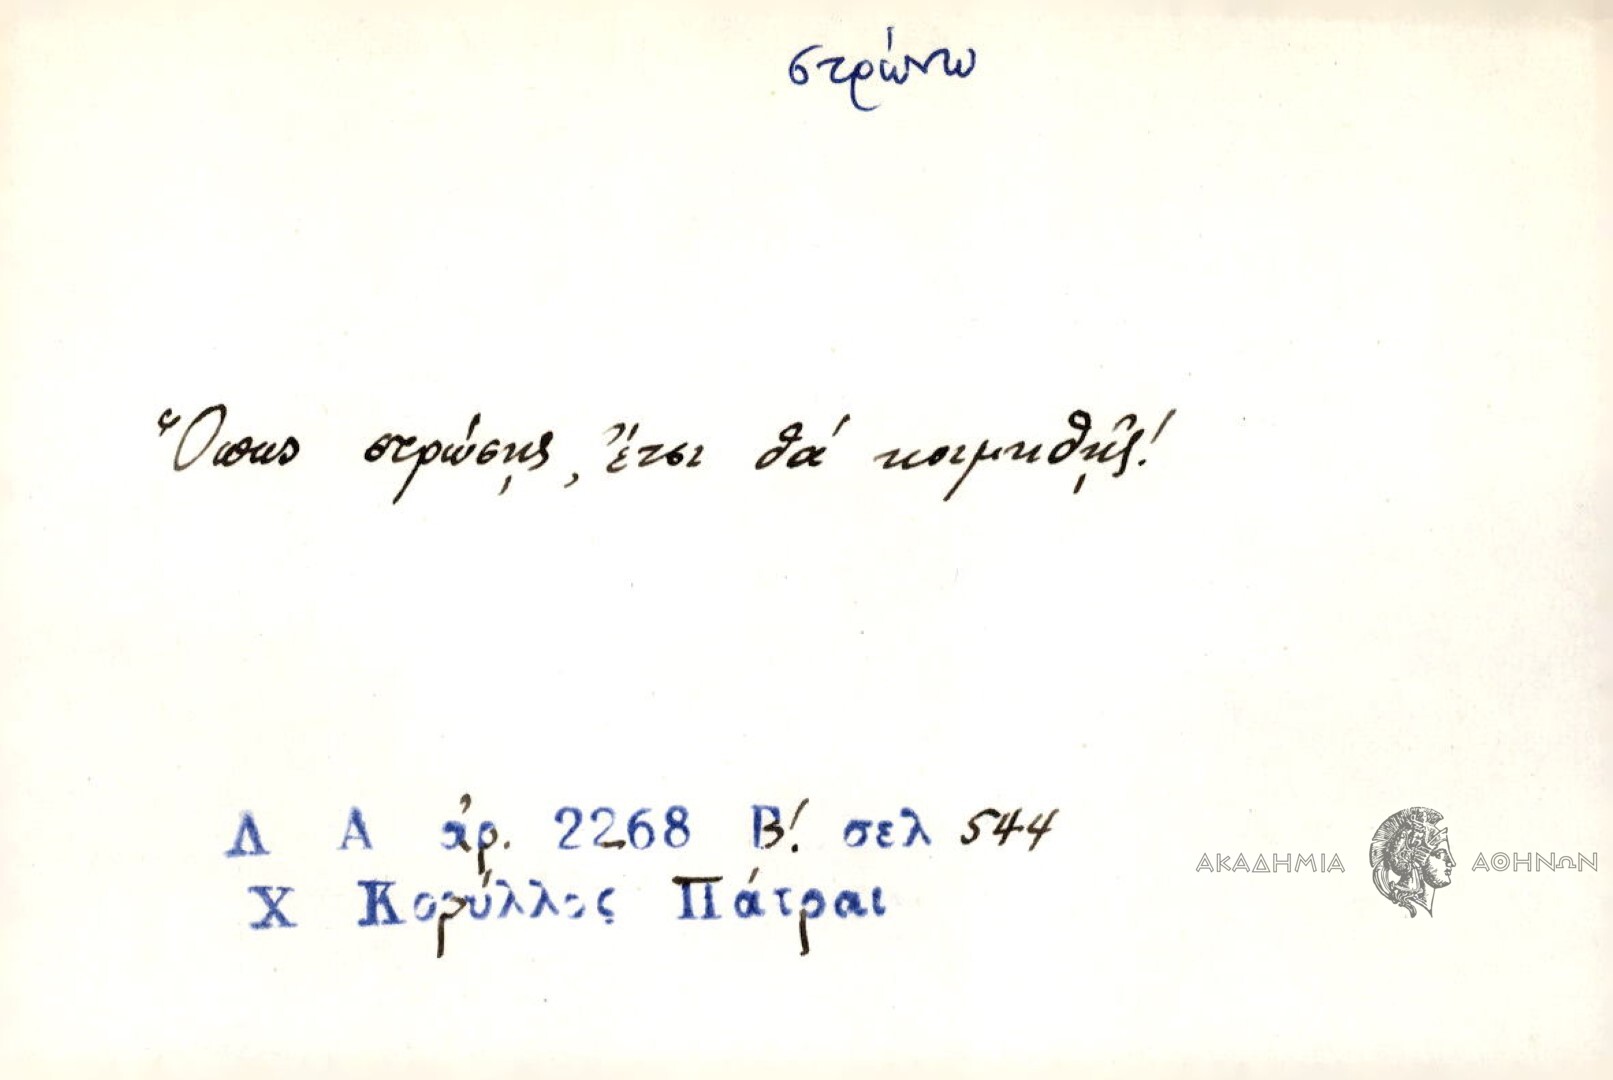 στρώνω
Ὅπως στρώσῃς, ἔτσι θά κοιμηθῇς!
Λ Α ἀρ. 2268 Β! σελ 544
Χ Κορύλλος Πάτραι
ΑΚΑΔΗΜΙΑ ΑΘΗΝΩΝ